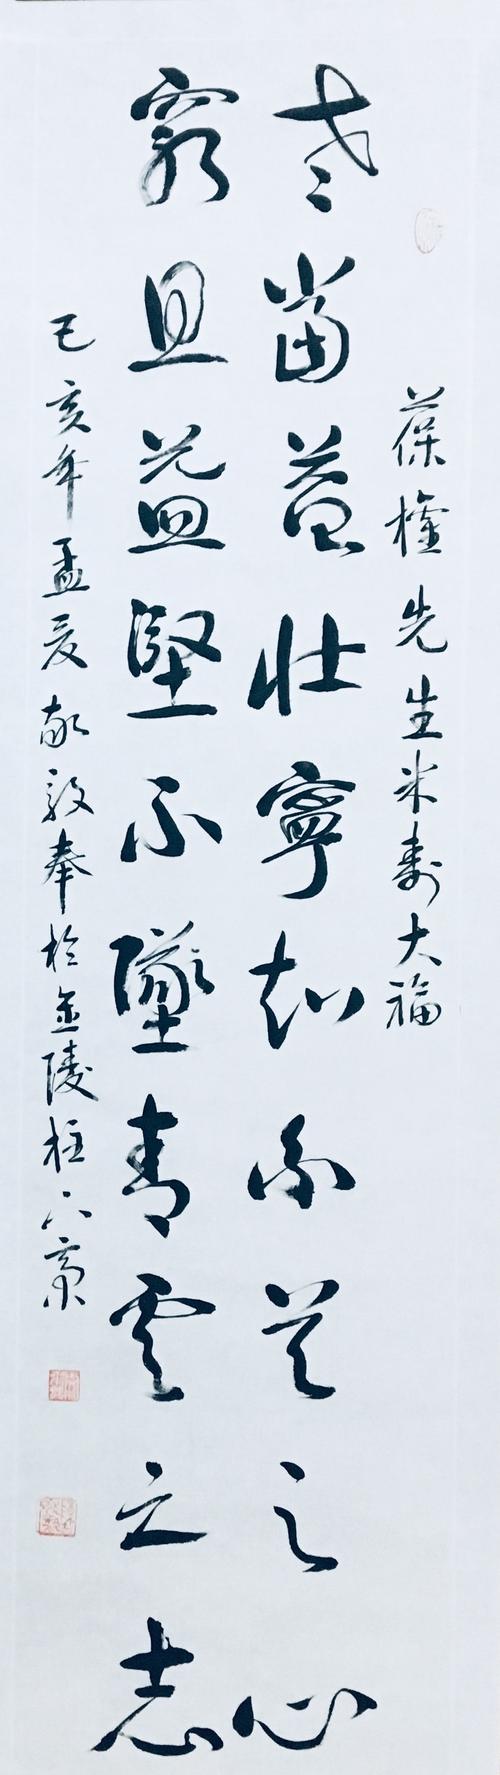 葆權先生米壽大福
老當益壯寧知白首之心
窮且益堅不墜青雲之志
己亥年孟夏敬敦奉於金陵柱下齋